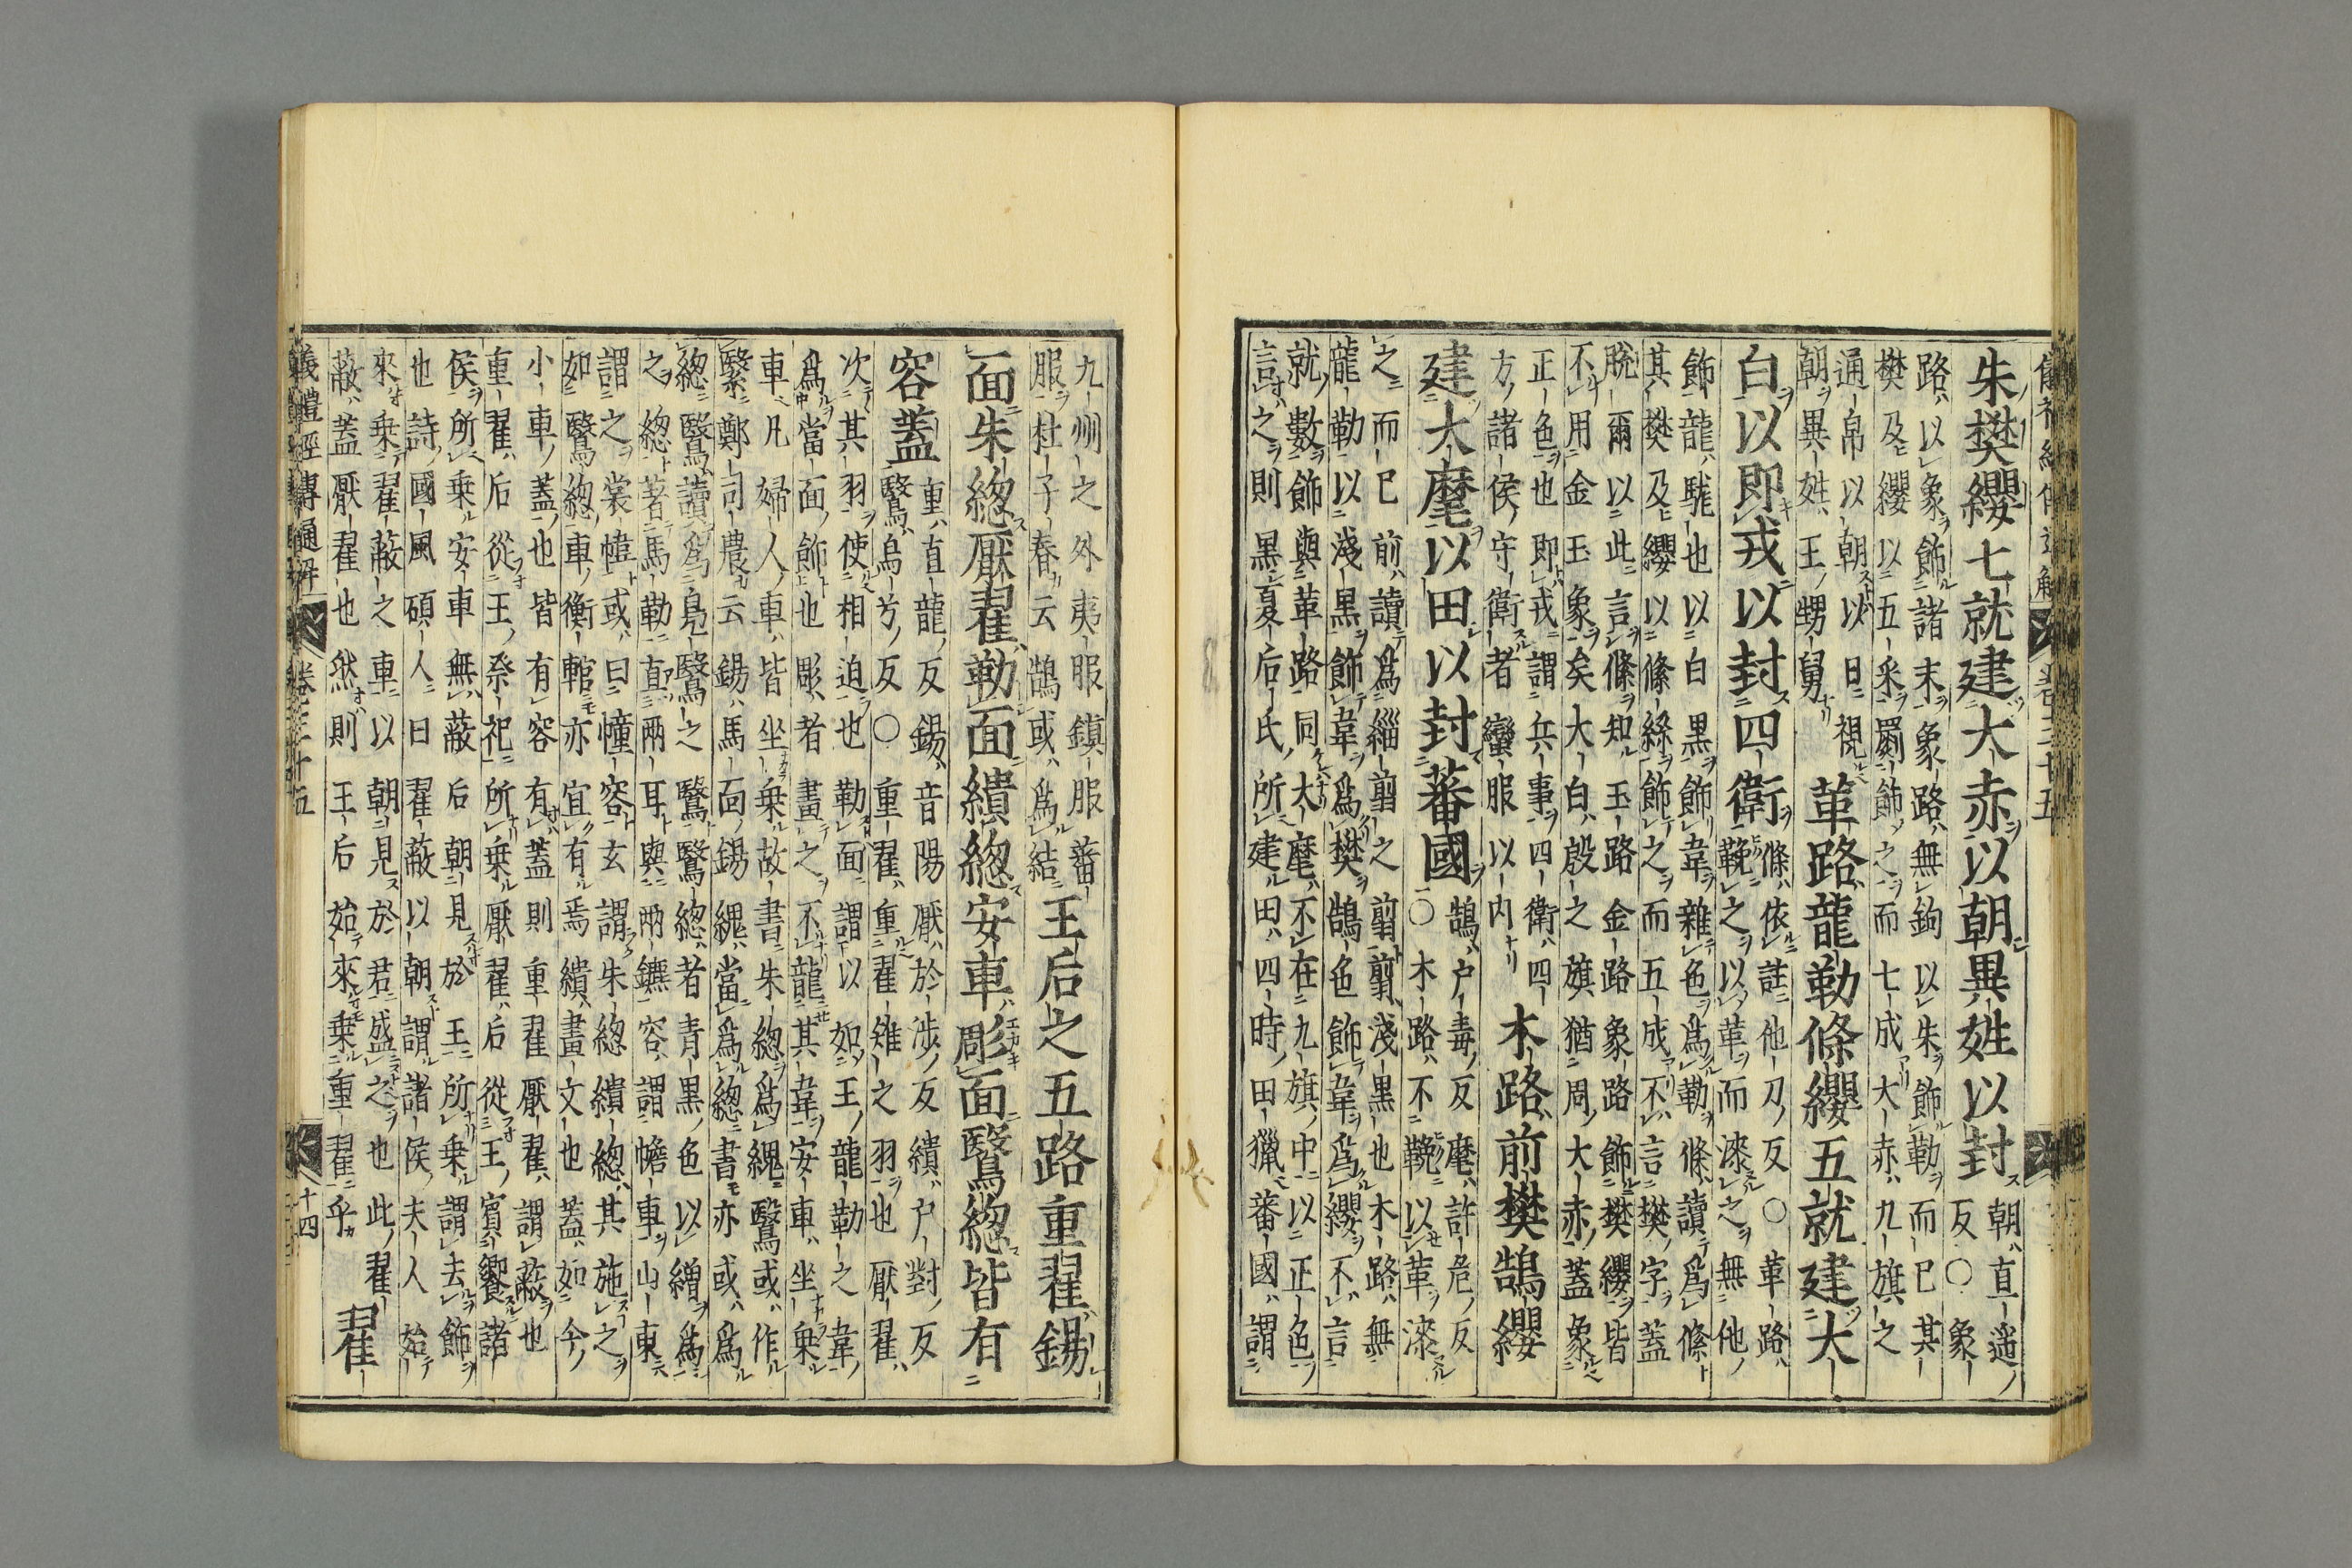 儀禮經傳通解 卷三十五
朱樊纓七就建大赤以朝異姓以封
朝直遥反○象
路以象飾諸末象路無鉤以朱飾勒而已其
樊及纓以五采罽飾之而七成大赤九旗之
通帛以朝以日視
朝異姓王甥舅
革路龍勒條纓五就建大
白以即戎以封四衛
條依註他刀反○革路
鞔之以革而漆之無他
飾龍駹也以白黒飾韋雜色爲勒條讀爲條
其樊及纓以條絲飾之而五成不言樊字蓋
脱爾以此言條知玉路金路象路飾樊纓皆
不用金玉象矣大白殷之旗猶周大赤蓋象
正色也即戎謂兵事四衛四
方諸侯守衛者蠻服以内
木路前樊鵠纓
建大麾以田以封蕃國
鵠户毒反麾許危反
○木路不鞔以革漆
之而已前讀爲緇翦之翦翦淺黒也木路無
龍勒以淺黒飾韋爲樊鵠色飾韋爲纓不言
就數飾與革路同大麾不在九旗中以正色
言之則黒夏后氏所建田四時田獵蕃國謂
九州之外夷服鎮服蕃
服杜子春云鵠或爲結
王后之五路重翟錫
面朱緫厭翟勒面繢緫安車彫面鷖緫皆有
容蓋
重直龍反錫音陽厭於涉反繢户對反
鷖烏兮反○重翟重翟雉之羽也厭翟
次其羽使相迫也勒面謂以如王龍勒之韋
爲當面飾也彫者畫之不龍其韋安車坐乗
車凡婦人車皆坐乗故書朱緫爲緄鷖或作
繄鄭司農云錫馬面錫緄當爲緫書亦或爲
緫鷖讀爲鳧鷖之鷖鷖緫者青黒色以繒爲
之緫著馬勒直兩耳與兩鑣容謂幨車山東
謂之裳幃或曰幢容玄謂朱緫繢緫其施之
如鷖緫車衡輨亦宜有焉繢畫文也蓋如今
小車蓋也皆有容有蓋則重翟厭翟謂蔽也
重翟后從王祭祀所乗厭翟后從王賓饗諸
侯所乗安車無蔽后朝見於王所乗謂去飾
也詩國風碩人曰翟蔽以朝謂諸侯夫人始
來乗翟蔽之車以朝見於君盛之也此翟
蔽蓋厭翟也然則王后始來乗重翟乎
翟
儀禮經傳通解 卷三十五 十四